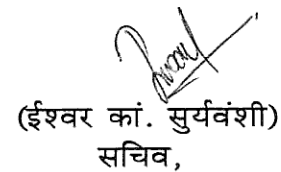 (ईश्वर कां. सुर्यवंशी)
सचिव,